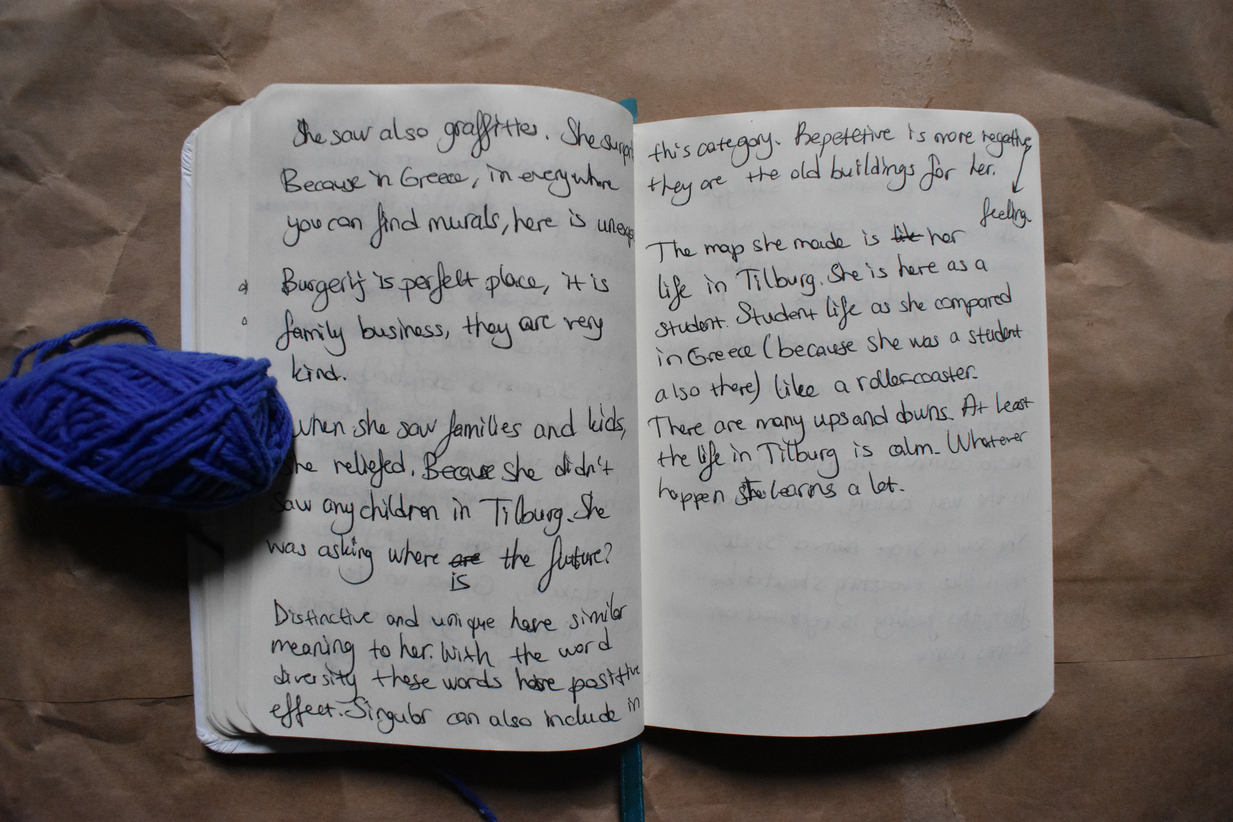 She saw also graffities. She surpri
Because in Greece, in everywhere
you can find murals, here is unexp
Burgerij is perfekt place, it is
family business, they are very
kind.
when she saw families and kids,
she reliefed. Because she didn't
saw any children in Tilburg. She
was asking where are the future?
is
Distinctive and unique have similar
meaning to her. With the word
diversity these words have positive
effect. Singular can also include in
this category. Repetetive is more negative
they are the old buildings for her.
feeling.
The map she made is like her
life in Tilburg. She is here as a
student. Student life as she compared
in Greece (because she was a student
also there) like a rollercoaster.
There are many ups and downs. At least
the life in Tilburg is calm. Whatever
happen she learns a lot.